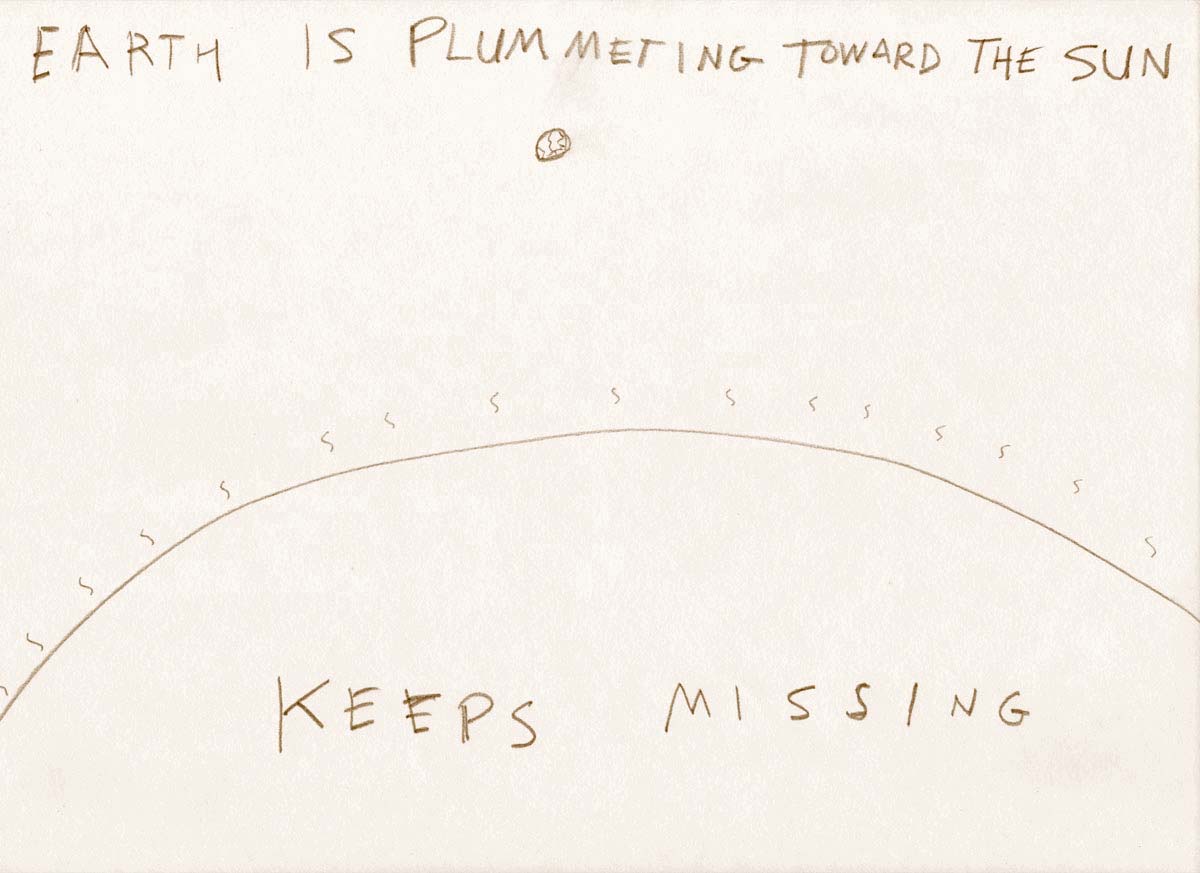 EARTH IS PLUMMETING TOWARD THE SUN
KEEPS MISSING